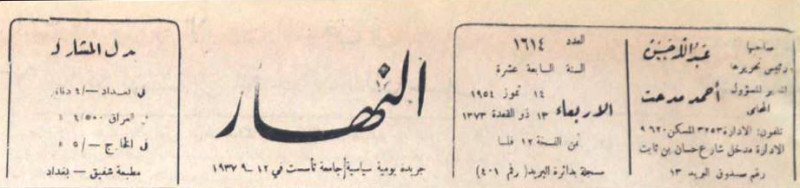 صاحبها
ورئيس تحريرها
عبد الله حسن
المدير المسؤول
المحامي
أحمد مدحت
تلفون: الادارة ٣٢٥٣ المسكن ٩٦٢٠
الادارة مدخل شارع حسان بن ثابت
رقم صندوق البريد ١٣
العدد ١٦١٤
السنة السابعة عشرة
١٤ تموز ١٩٥٤
الاربعاء
١٣ ذو القعدة ١٣٧٣
ثمن النسخة ١٢ فلسا
مسجلة بدائرة البريد (رقم ٤٠١)
النهار
جريدة يومية سياسية جامعة تأسست في ١٢ – ٩ – ١٩٣٧
بدل المشاركة
في بغداد
العراق
في الخارج
مطبعة شفيق – بغداد